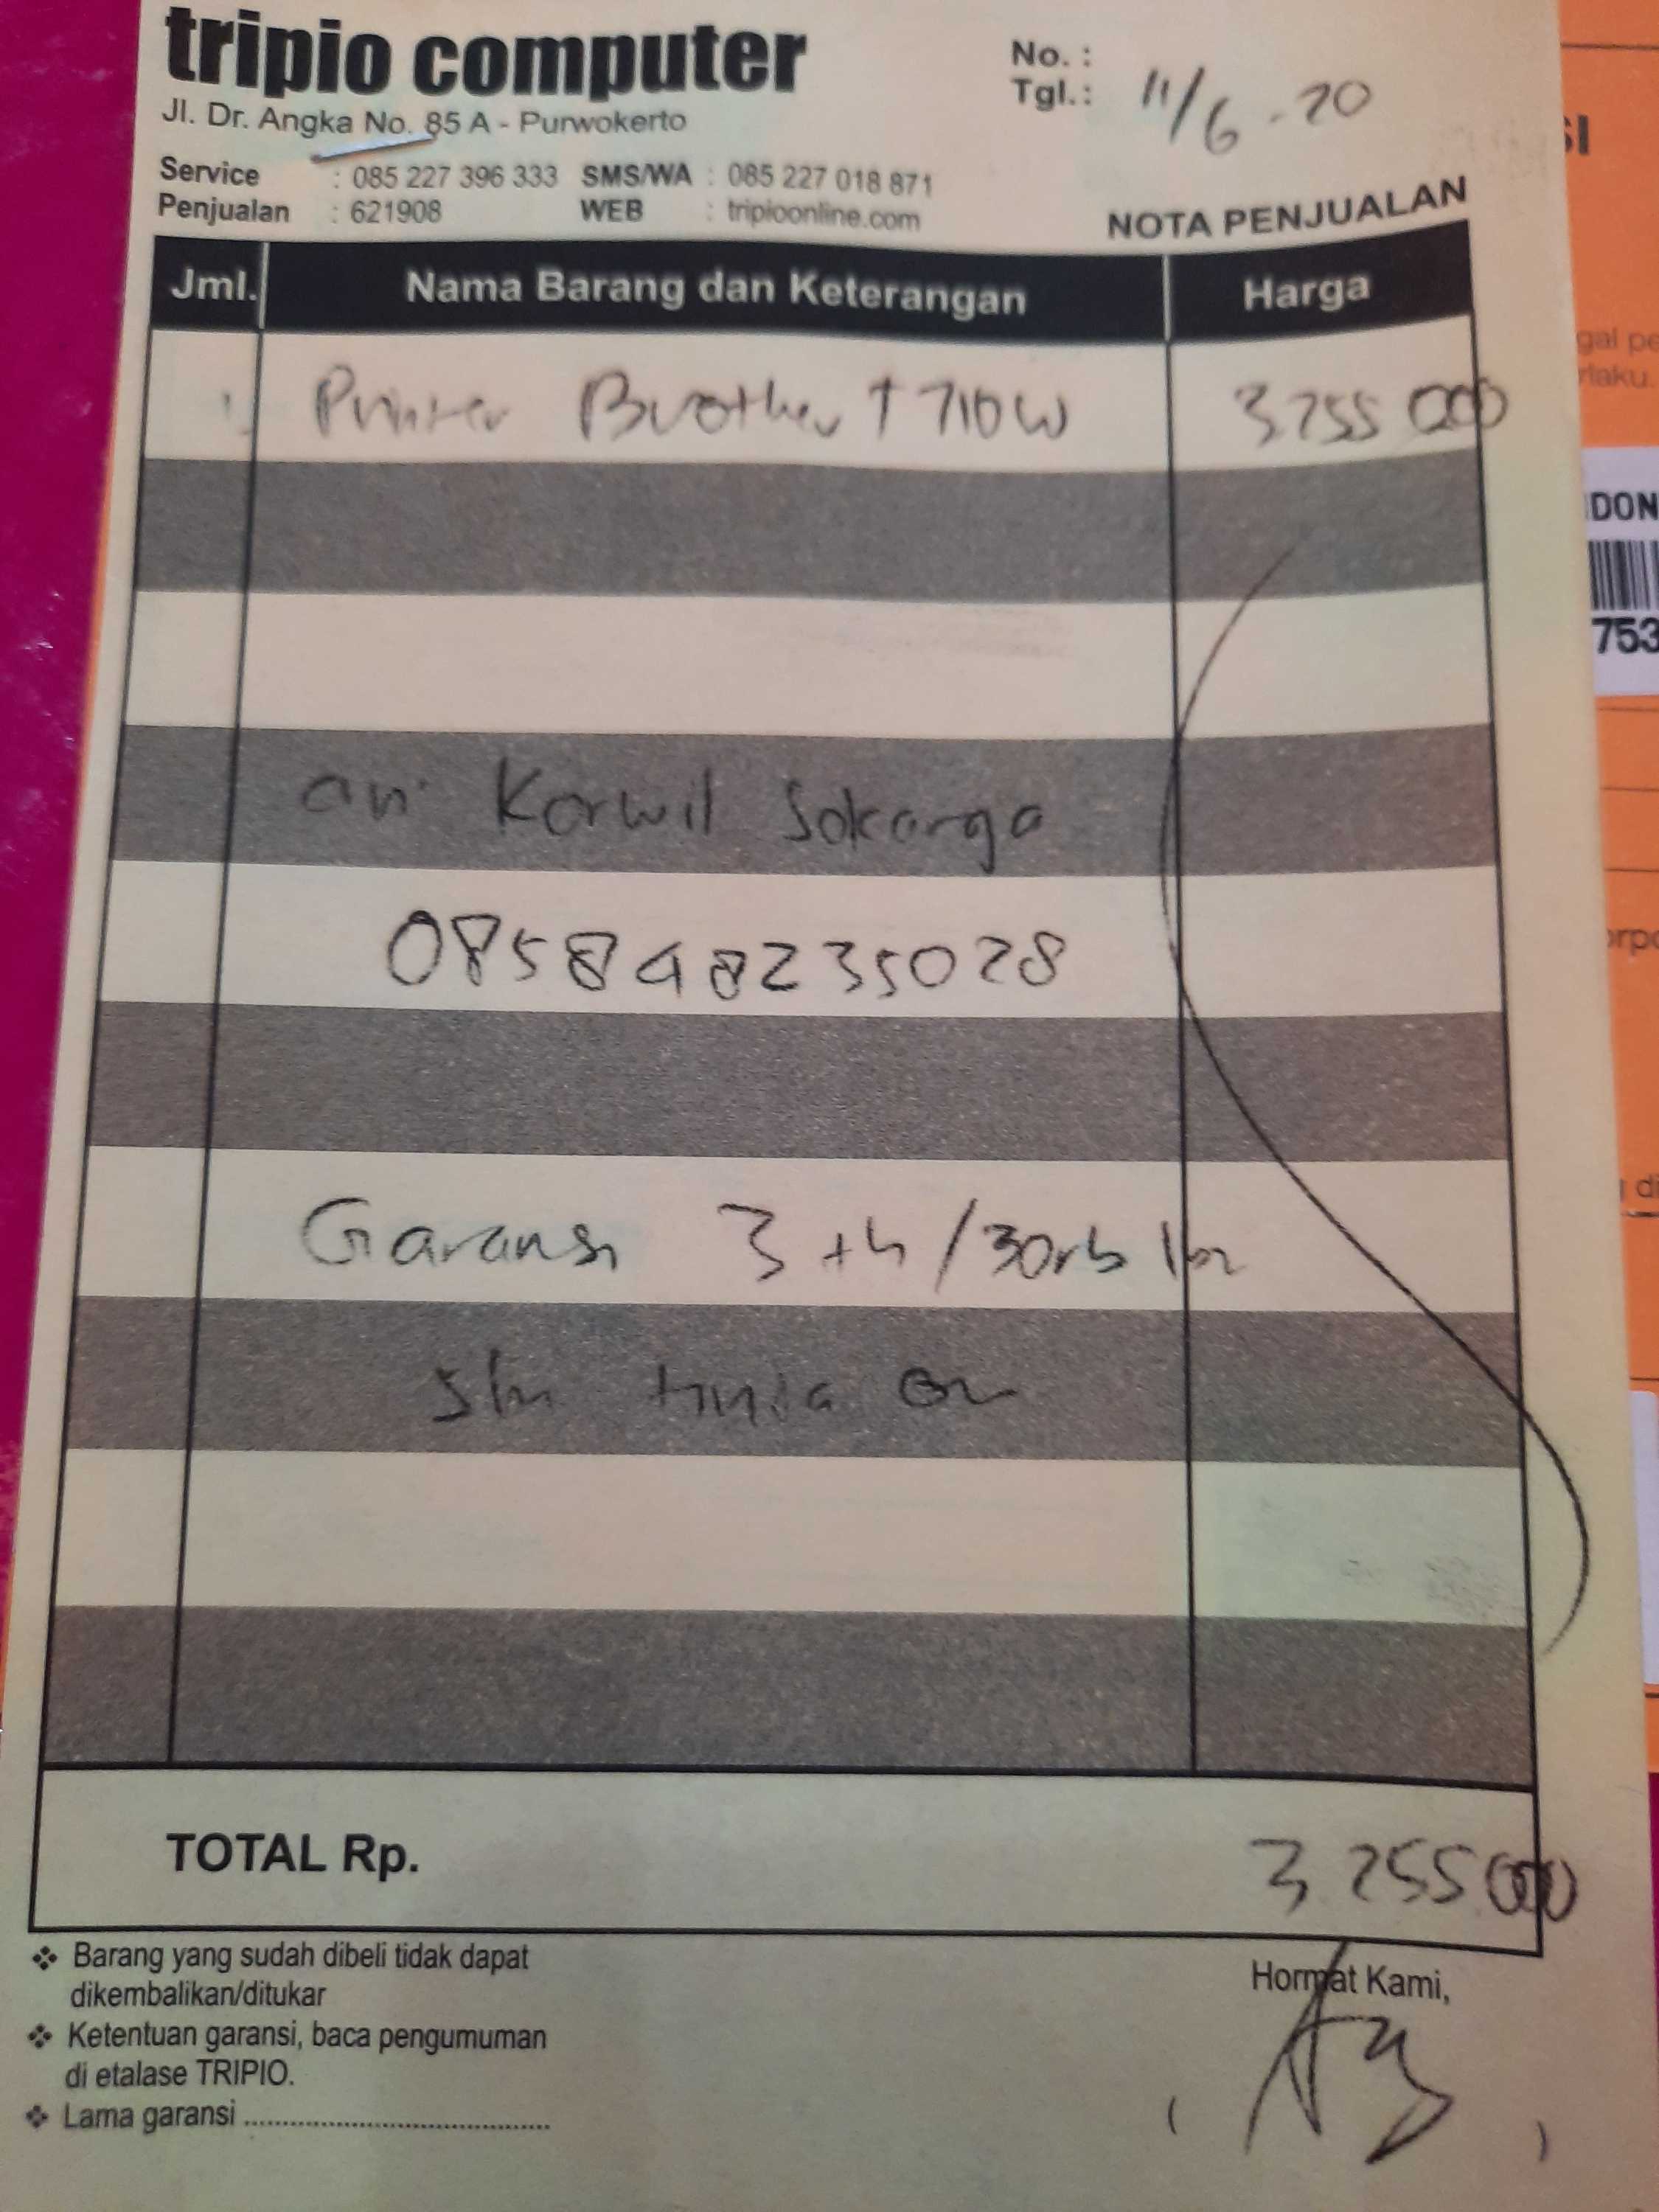 tripio computer
Jl. Dr. Angka No. 85 A - Purwokerto
No. :
Tgl.: 11/6-20
Service : 085 227 396 333 SMS/WA : 085 227 018 871
Penjualan : 621908 WEB : tripioonline.com
NOTA PENJUALAN
Jml. Nama Barang dan Keterangan Harga
1 Printer Brother T710W 3255000
an. Korwil Sokaraga
085848235028
Garansi 3 th/30rb lbr
TOTAL Rp. 3.255.000
Barang yang sudah dibeli tidak dapat
dikembalikan/ditukar
Ketentuan garansi, baca pengumuman
di etalase TRIPIO.
Lama garansi ........................................
Hormat Kami,
SI
gal pe
rlaku.
DON
753
orpo
di